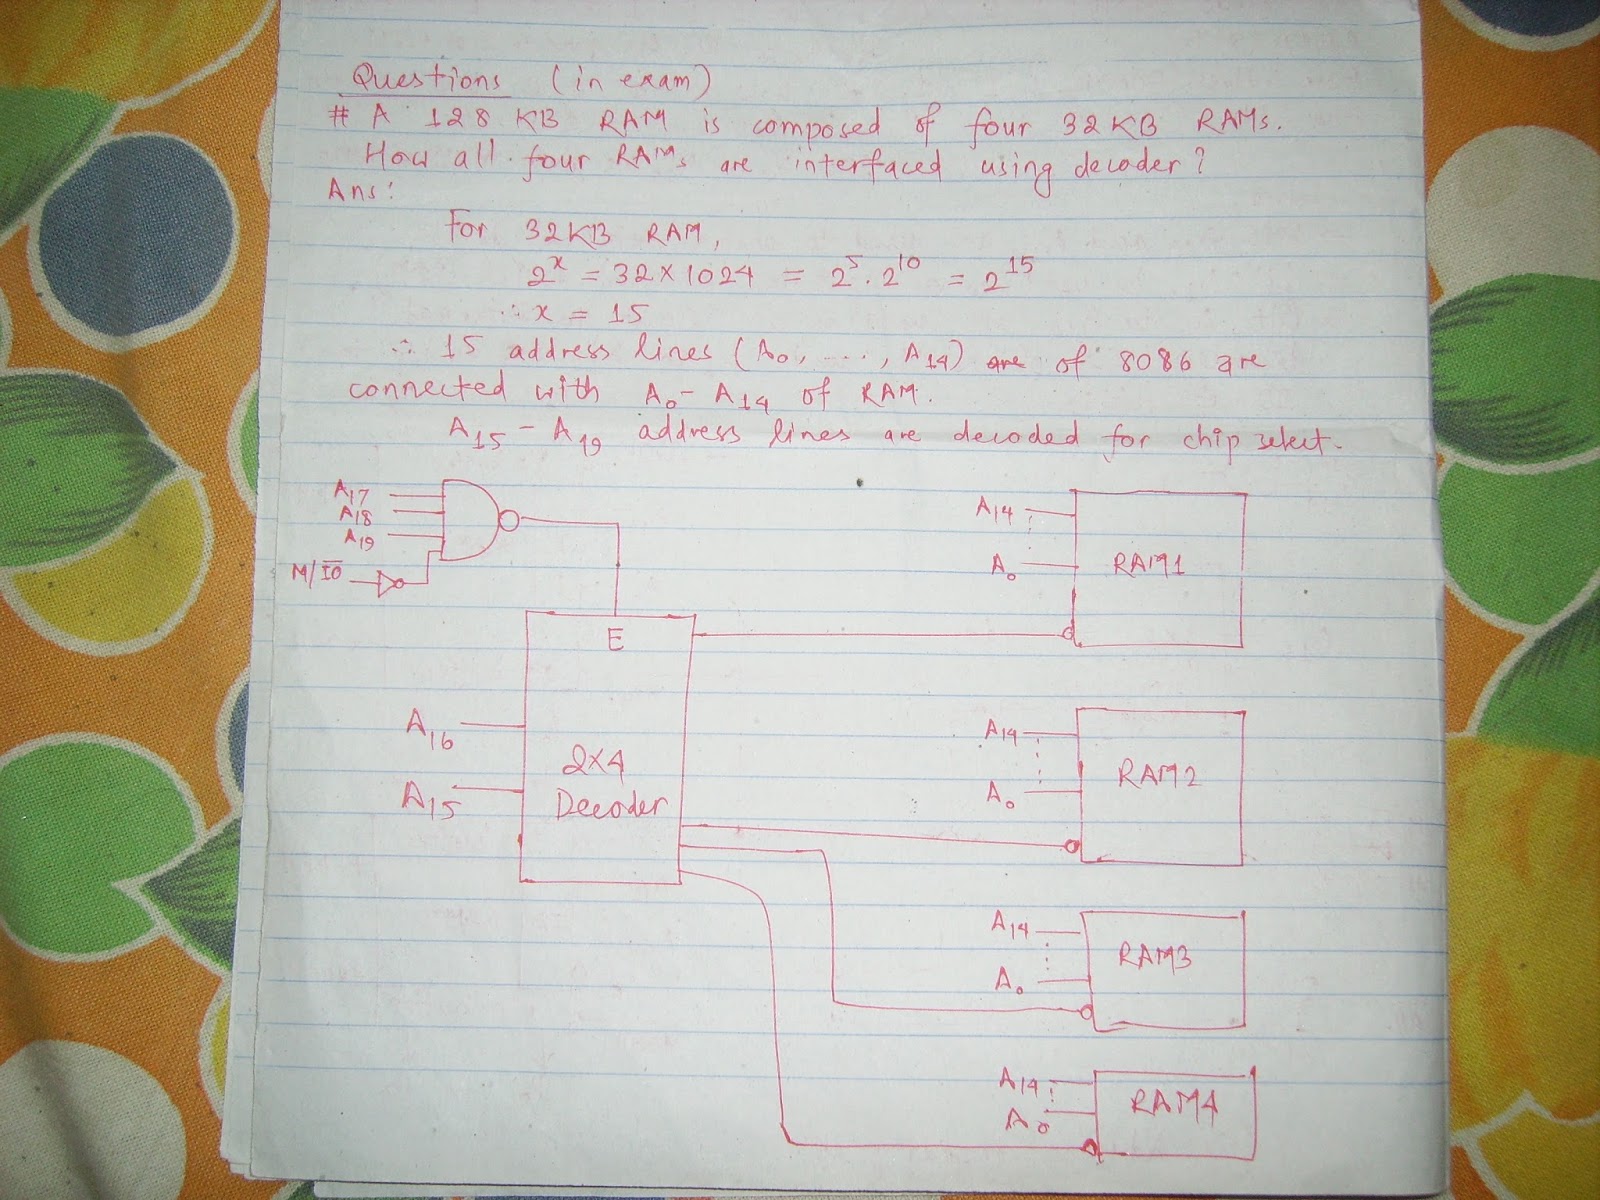 Questions (in exam)
# A 128 KB RAM is composed of four 32KB RAMs.
How all four RAMs are interfaced using decoder?
Ans:
For 32KB RAM,
2^x = 32×1024 = 2^5 . 2^10 = 2^15
∴ x = 15
∴ 15 address lines (A0, ...., A14) are of 8086 are
connected with A0 - A14 of RAM.
A15 - A19 address lines are decoded for chip select.
A17
A18
A19
M/I̅O̅
E
A16
A15
2×4
Decoder
A14
A0
RAM1
A14
A0
RAM2
A14
A0
RAM3
A14
A0
RAM4